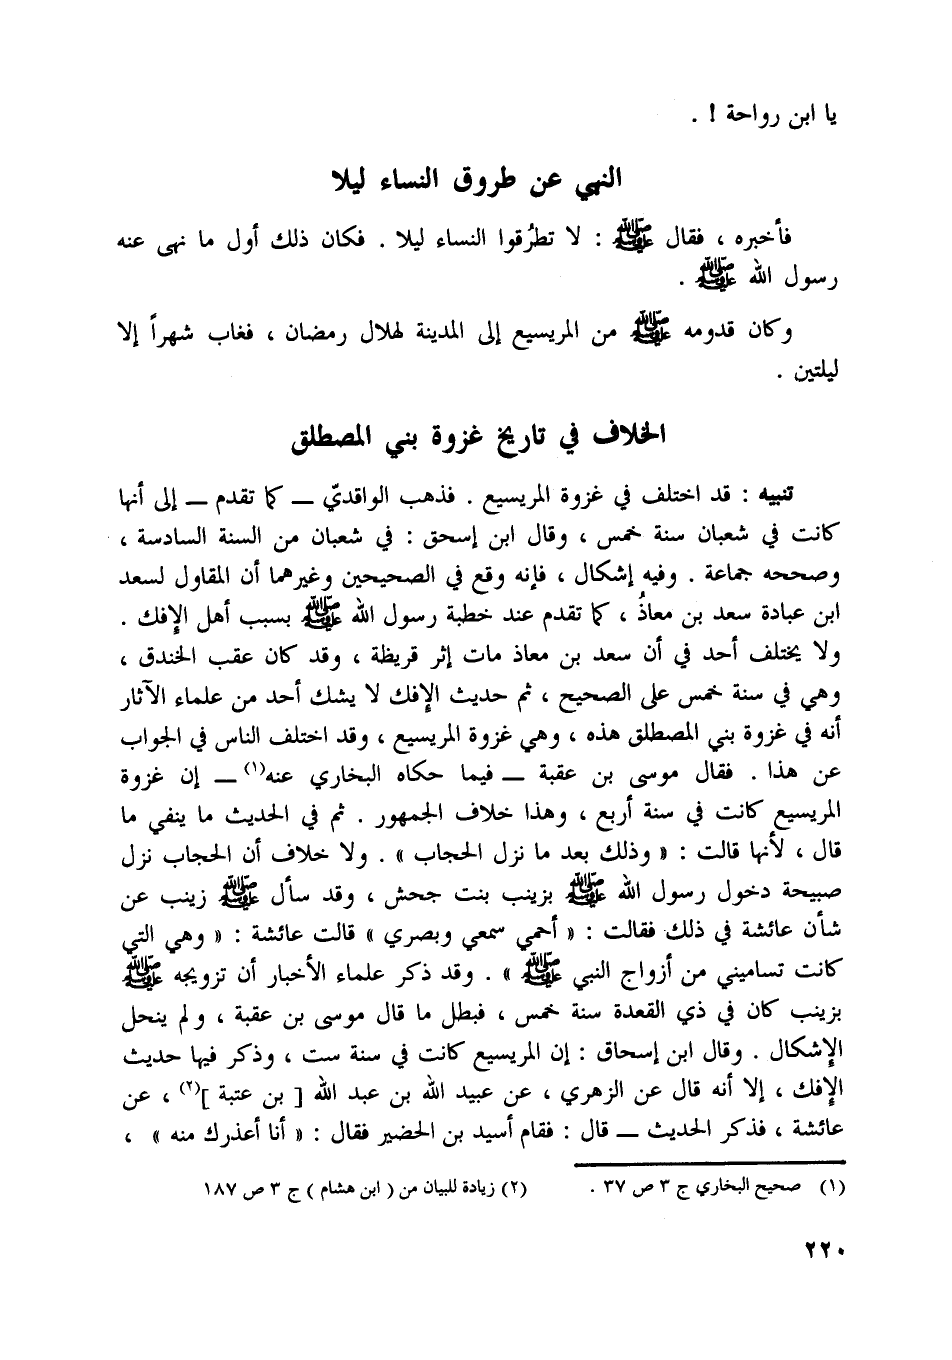 يا ابن رواحة ! .
النهي عن طروق النساء ليلا
فأخبره ، فقال ﷺ : لا تطرُقوا النساء ليلا . فكان ذلك أول ما نهى عنه
رسول الله ﷺ .
وكان قدومه ﷺ من المريسيع إلى المدينة لهلال رمضان ، فغاب شهراً إلا
ليلتين .
الخلاف في تاريخ غزوة بني المصطلق
تنبيه : قد اختلف في غزوة المريسيع . فذهب الواقديّ — كما تقدم — إلى أنها
كانت في شعبان سنة خمس ، وقال ابن إسحق : في شعبان من السنة السادسة ،
وصححه جماعة . وفيه إشكال ، فإنه وقع في الصحيحين وغيرهما أن المقاول لسعد
ابن عبادة سعد بن معاذُ ، كما تقدم عند خطبة رسول الله ﷺ بسبب أهل الإفك .
ولا يختلف أحد في أن سعد بن معاذ مات إثر قريظة ، وقد كان عقب الخندق ،
وهي في سنة خمس على الصحيح ، ثم حديث الإفك لا يشك أحد من علماء الآثار
أنه في غزوة بني المصطلق هذه ، وهي غزوة المريسيع ، وقد اختلف الناس في الجواب
عن هذا . فقال موسى بن عقبة — فيما حكاه البخاري عنه(١) — إن غزوة
المريسيع كانت في سنة أربع ، وهذا خلاف الجمهور . ثم في الحديث ما ينفي ما
قال ، لأنها قالت : « وذلك بعد ما نزل الحجاب » . ولا خلاف أن الحجاب نزل
صبيحة دخول رسول الله ﷺ بزينب بنت جحش ، وقد سأل ﷺ زينب عن
شأن عائشة في ذلك فقالت : « أحمي سمعي وبصري » قالت عائشة : « وهي التي
كانت تساميني من أزواج النبي ﷺ » . وقد ذكر علماء الأخبار أن تزويجه ﷺ
بزينب كان في ذي القعدة سنة خمس ، فبطل ما قال موسى بن عقبة ، ولم ينحل
الإشكال . وقال ابن إسحاق : إن المريسيع كانت في سنة ست ، وذكر فيها حديث
الإفك ، إلا أنه قال عن الزهري ، عن عبيد الله بن عبد الله [ بن عتبة ](٢) ، عن
عائشة ، فذكر الحديث — قال : فقام أسيد بن الحضير فقال : « أنا أعذرك منه » ،
(١) صحيح البخاري ج ٣ ص ٣٧ . (٢) زيادة للبيان من ( ابن هشام ) ج ٣ ص ١٨٧
٢٢٠